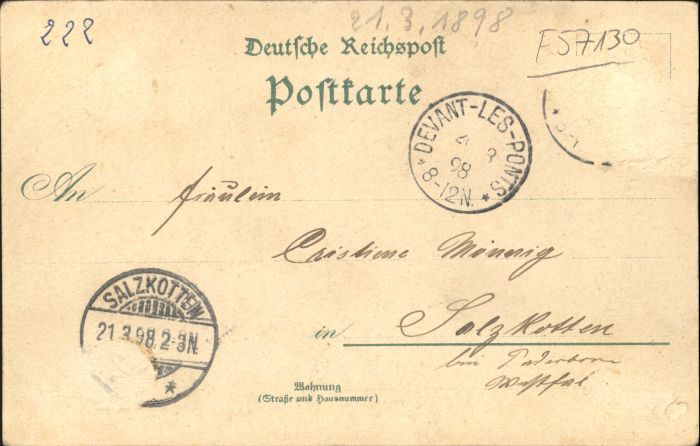 222
21.3.1898
F57130
Deutsche Reichspost
Postkarte
DEVANT-LES-PONTS
3
98
8-12N.
An Fräulein
Cristiene
in Salzkotten
bei Paderborn
Westfal
SALZKOTTEN
21.3.98.2-3N
Wohnung
(Straße und Hausnummer)